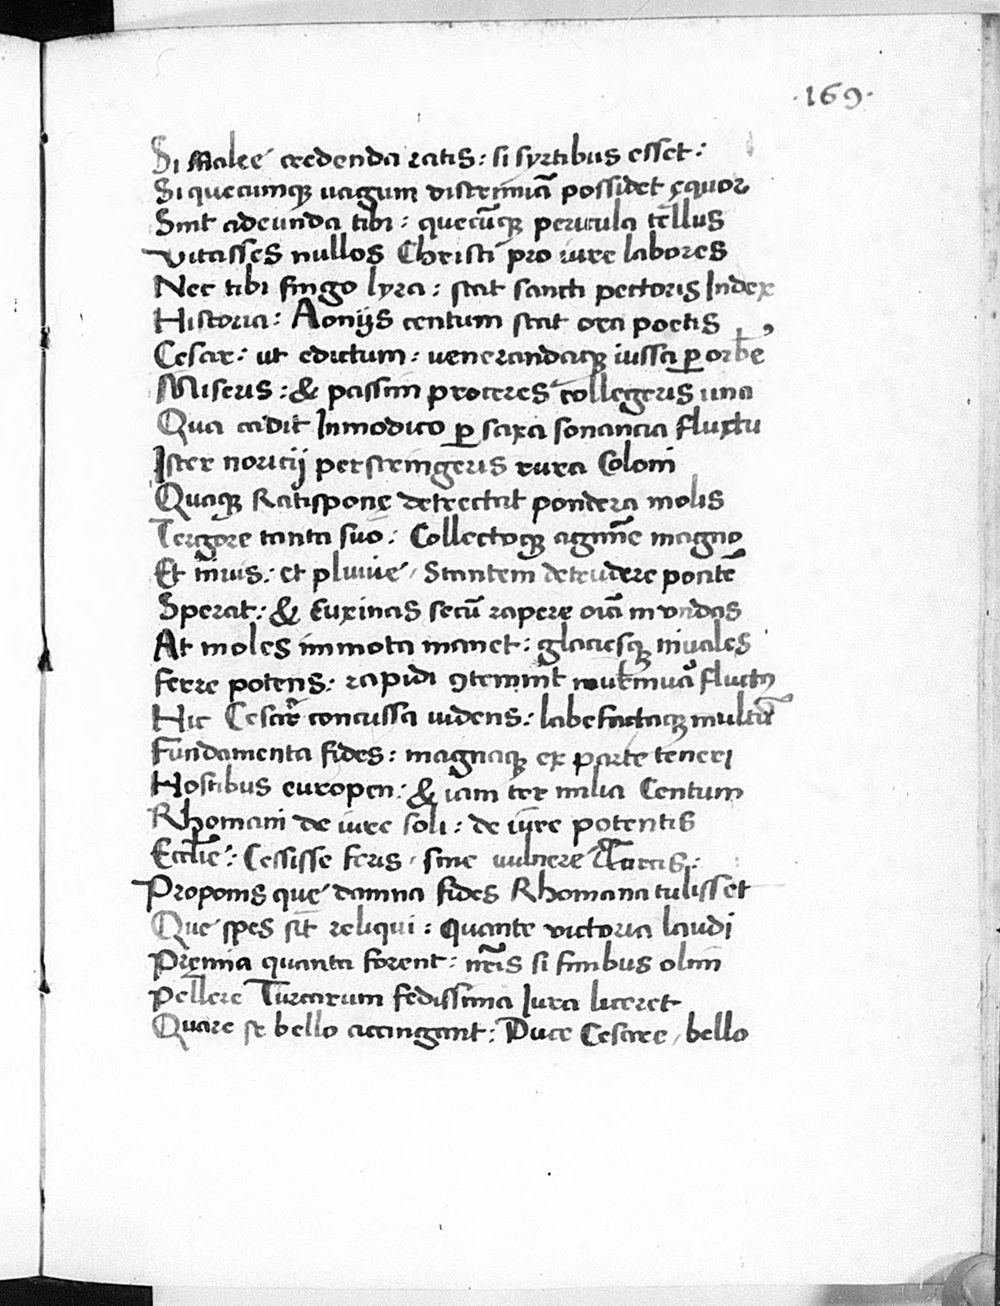 ·169·
Si Malee credenda ratis: si syrtibus esset:
Si quecumqꝫ uagum discriminā possidet ęquor
Sint adeunda tibi: quecūqꝫ pericula tellus
vitasses nullos Christi pro iure labores
Nec tibi fingo lyra: stat sancti pectoris Index
Historia: Aonijs centum stat ora poetis
Cesar: ut edictum: uenerandaqꝫ iussa ꝑ orbē
Miseris: & passim proceres collegeris una
Qua cadit Inmodico ꝑ saxa sonancia fluxtu
Ister noricij perstringeris rura Coloni
Quaqꝫ Ratisponę detrectat pondera molis
Tergore tanta suo: Collectoqꝫ agmīe magno
Et niuis: et pluuie, Stantem detrudere pontē
Sperat: & Euxinas secū rapere oīa in vndas
At moles immota manet: glaciesqꝫ niuales
Ferre potens: rapidi ꝯtemnit fluctꝰ
Hic Cesar concussa uidens: labefactaqꝫ multū
Fundamenta fides: magnaqꝫ ex parte teneri
Hostibus europen: & iam ter milia Centum
Rhomani de iure soli: de iure potentis
Eccl̄ie: Cessisse feris, sine uulnere Turcis:
Proponis quę damna fides Rhomana tulisset
Que spes sit reliqui: quante victoria laudi
Pręmia quanta forent: nr̄is si finibus olim
Pellere Turcarum fedissima Iura liceret
Quare se bello accingant: Duce Cesare, bello